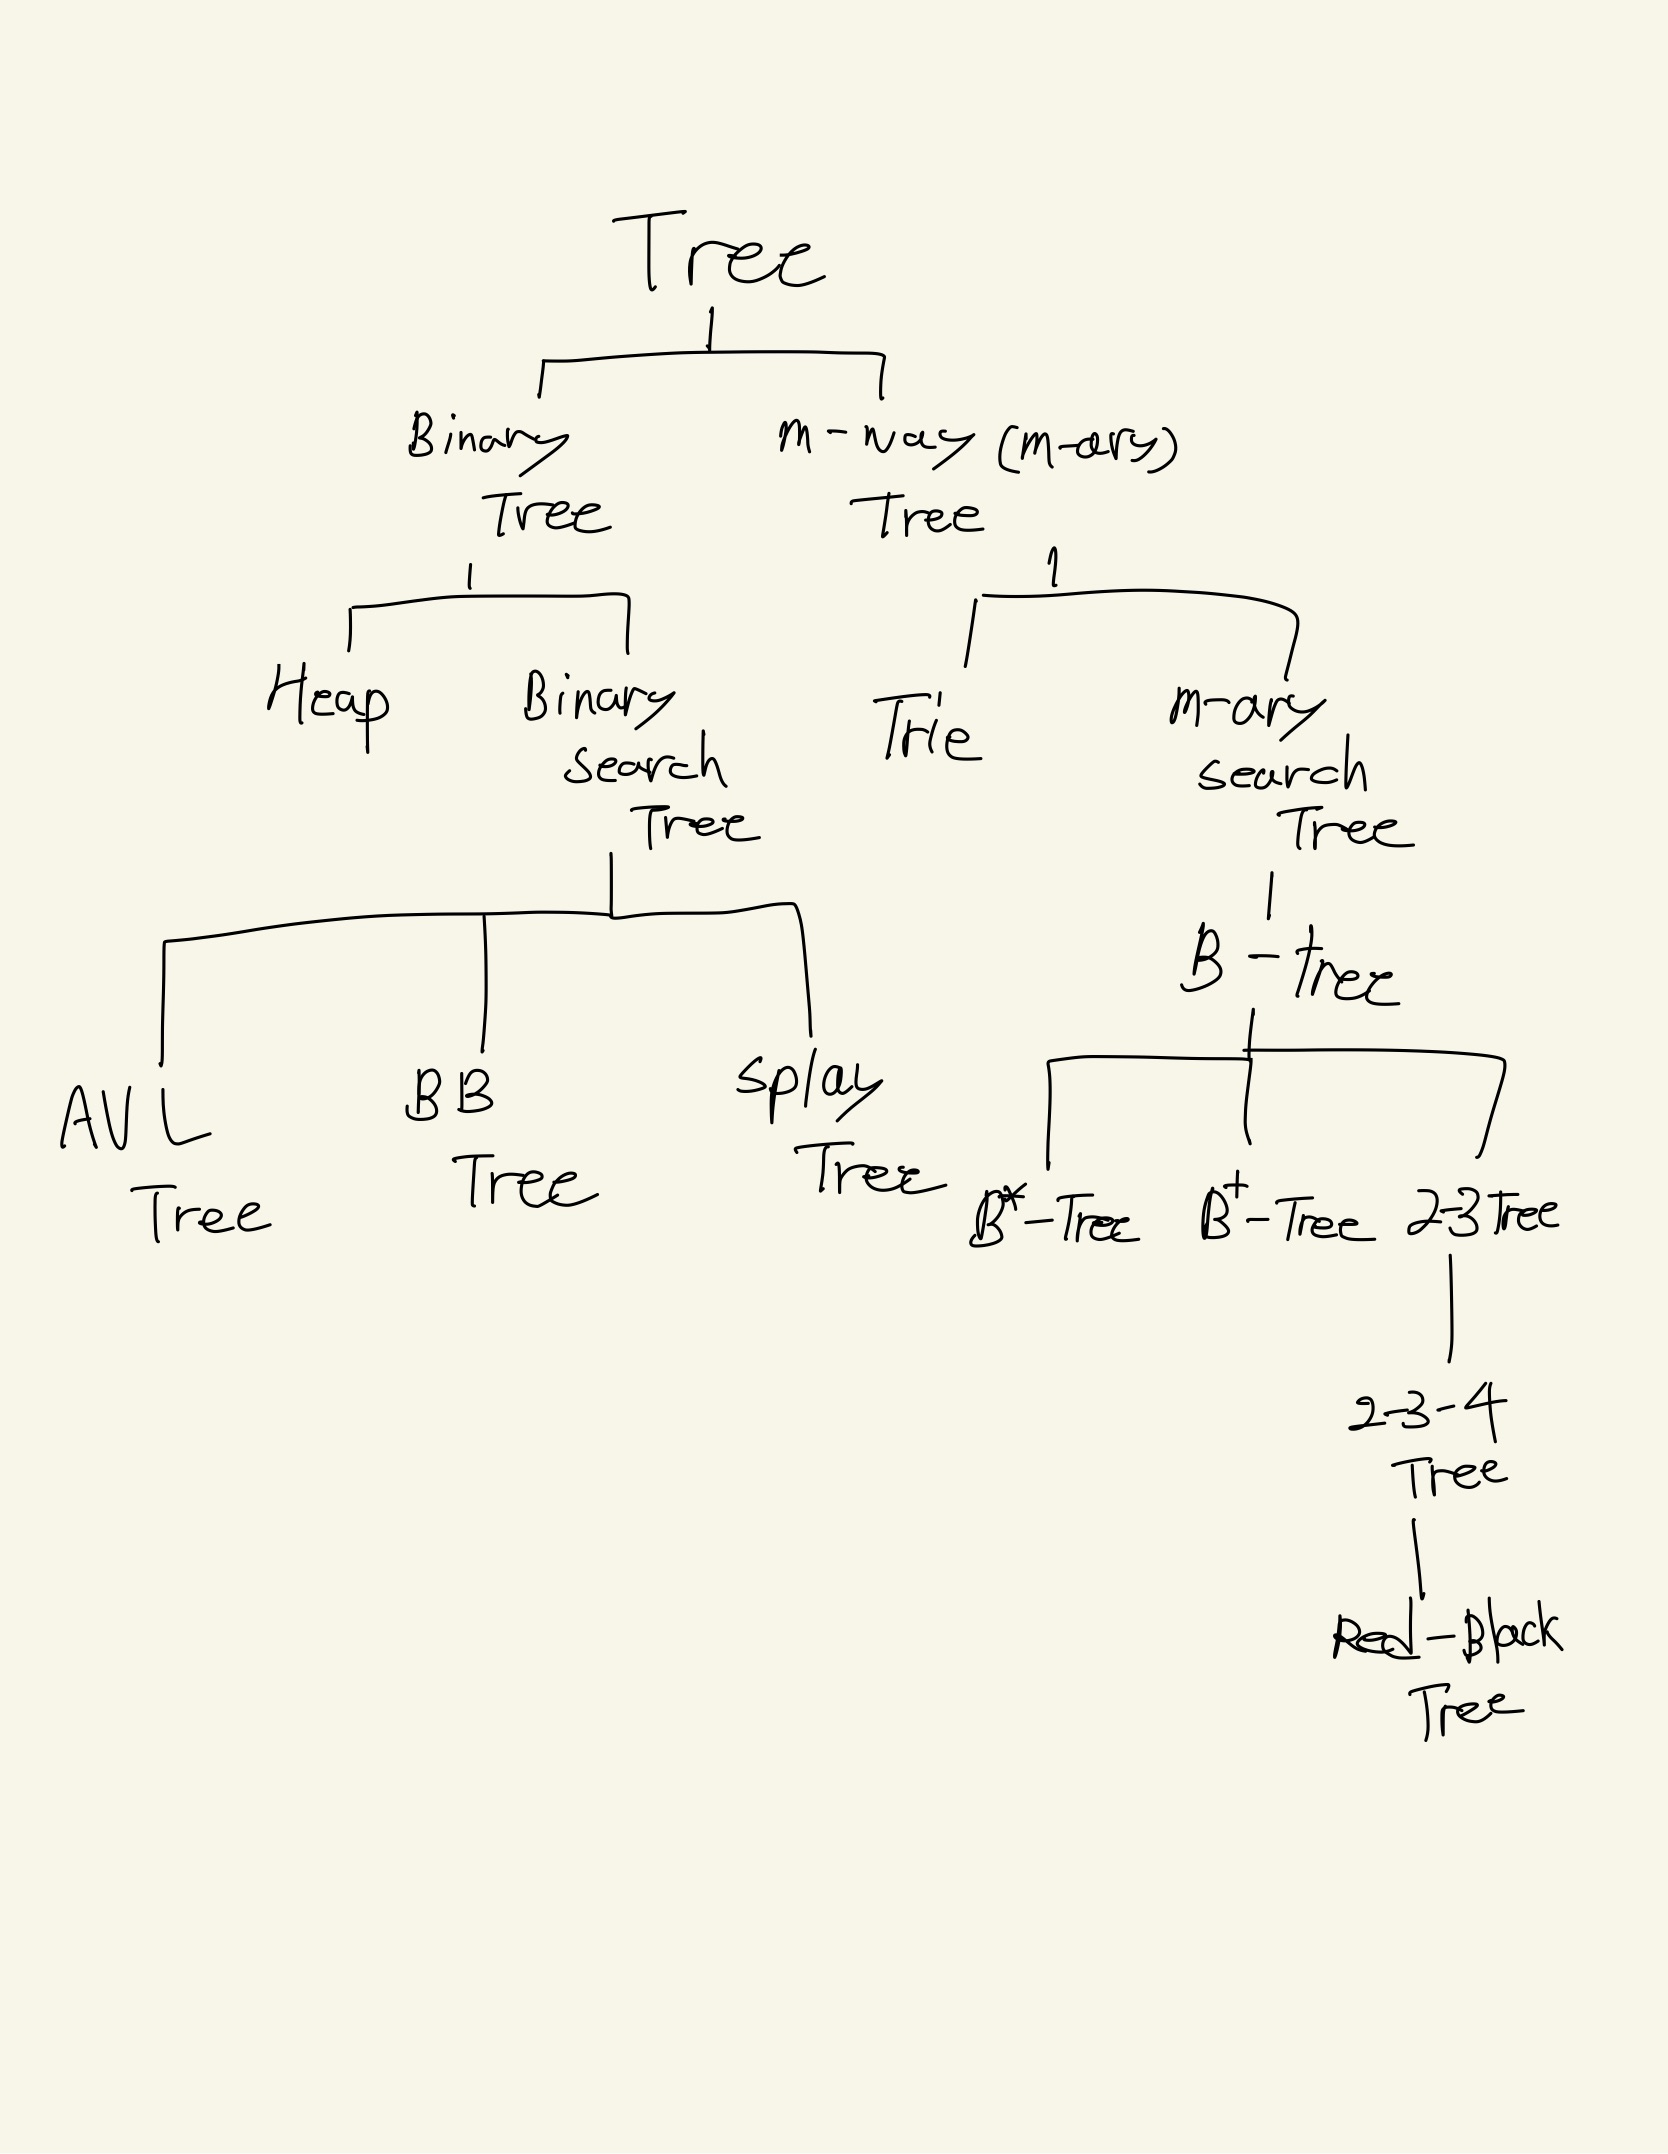 Tree
Binary
Tree
m-way (m-ary)
Tree
Heap
Binary
search
Tree
Trie
m-ary
search
Tree
B-tree
AVL
Tree
BB
Tree
Splay
Tree
B*-Tree
B+-Tree
2-3 Tree
2-3-4
Tree
Red-Black
Tree